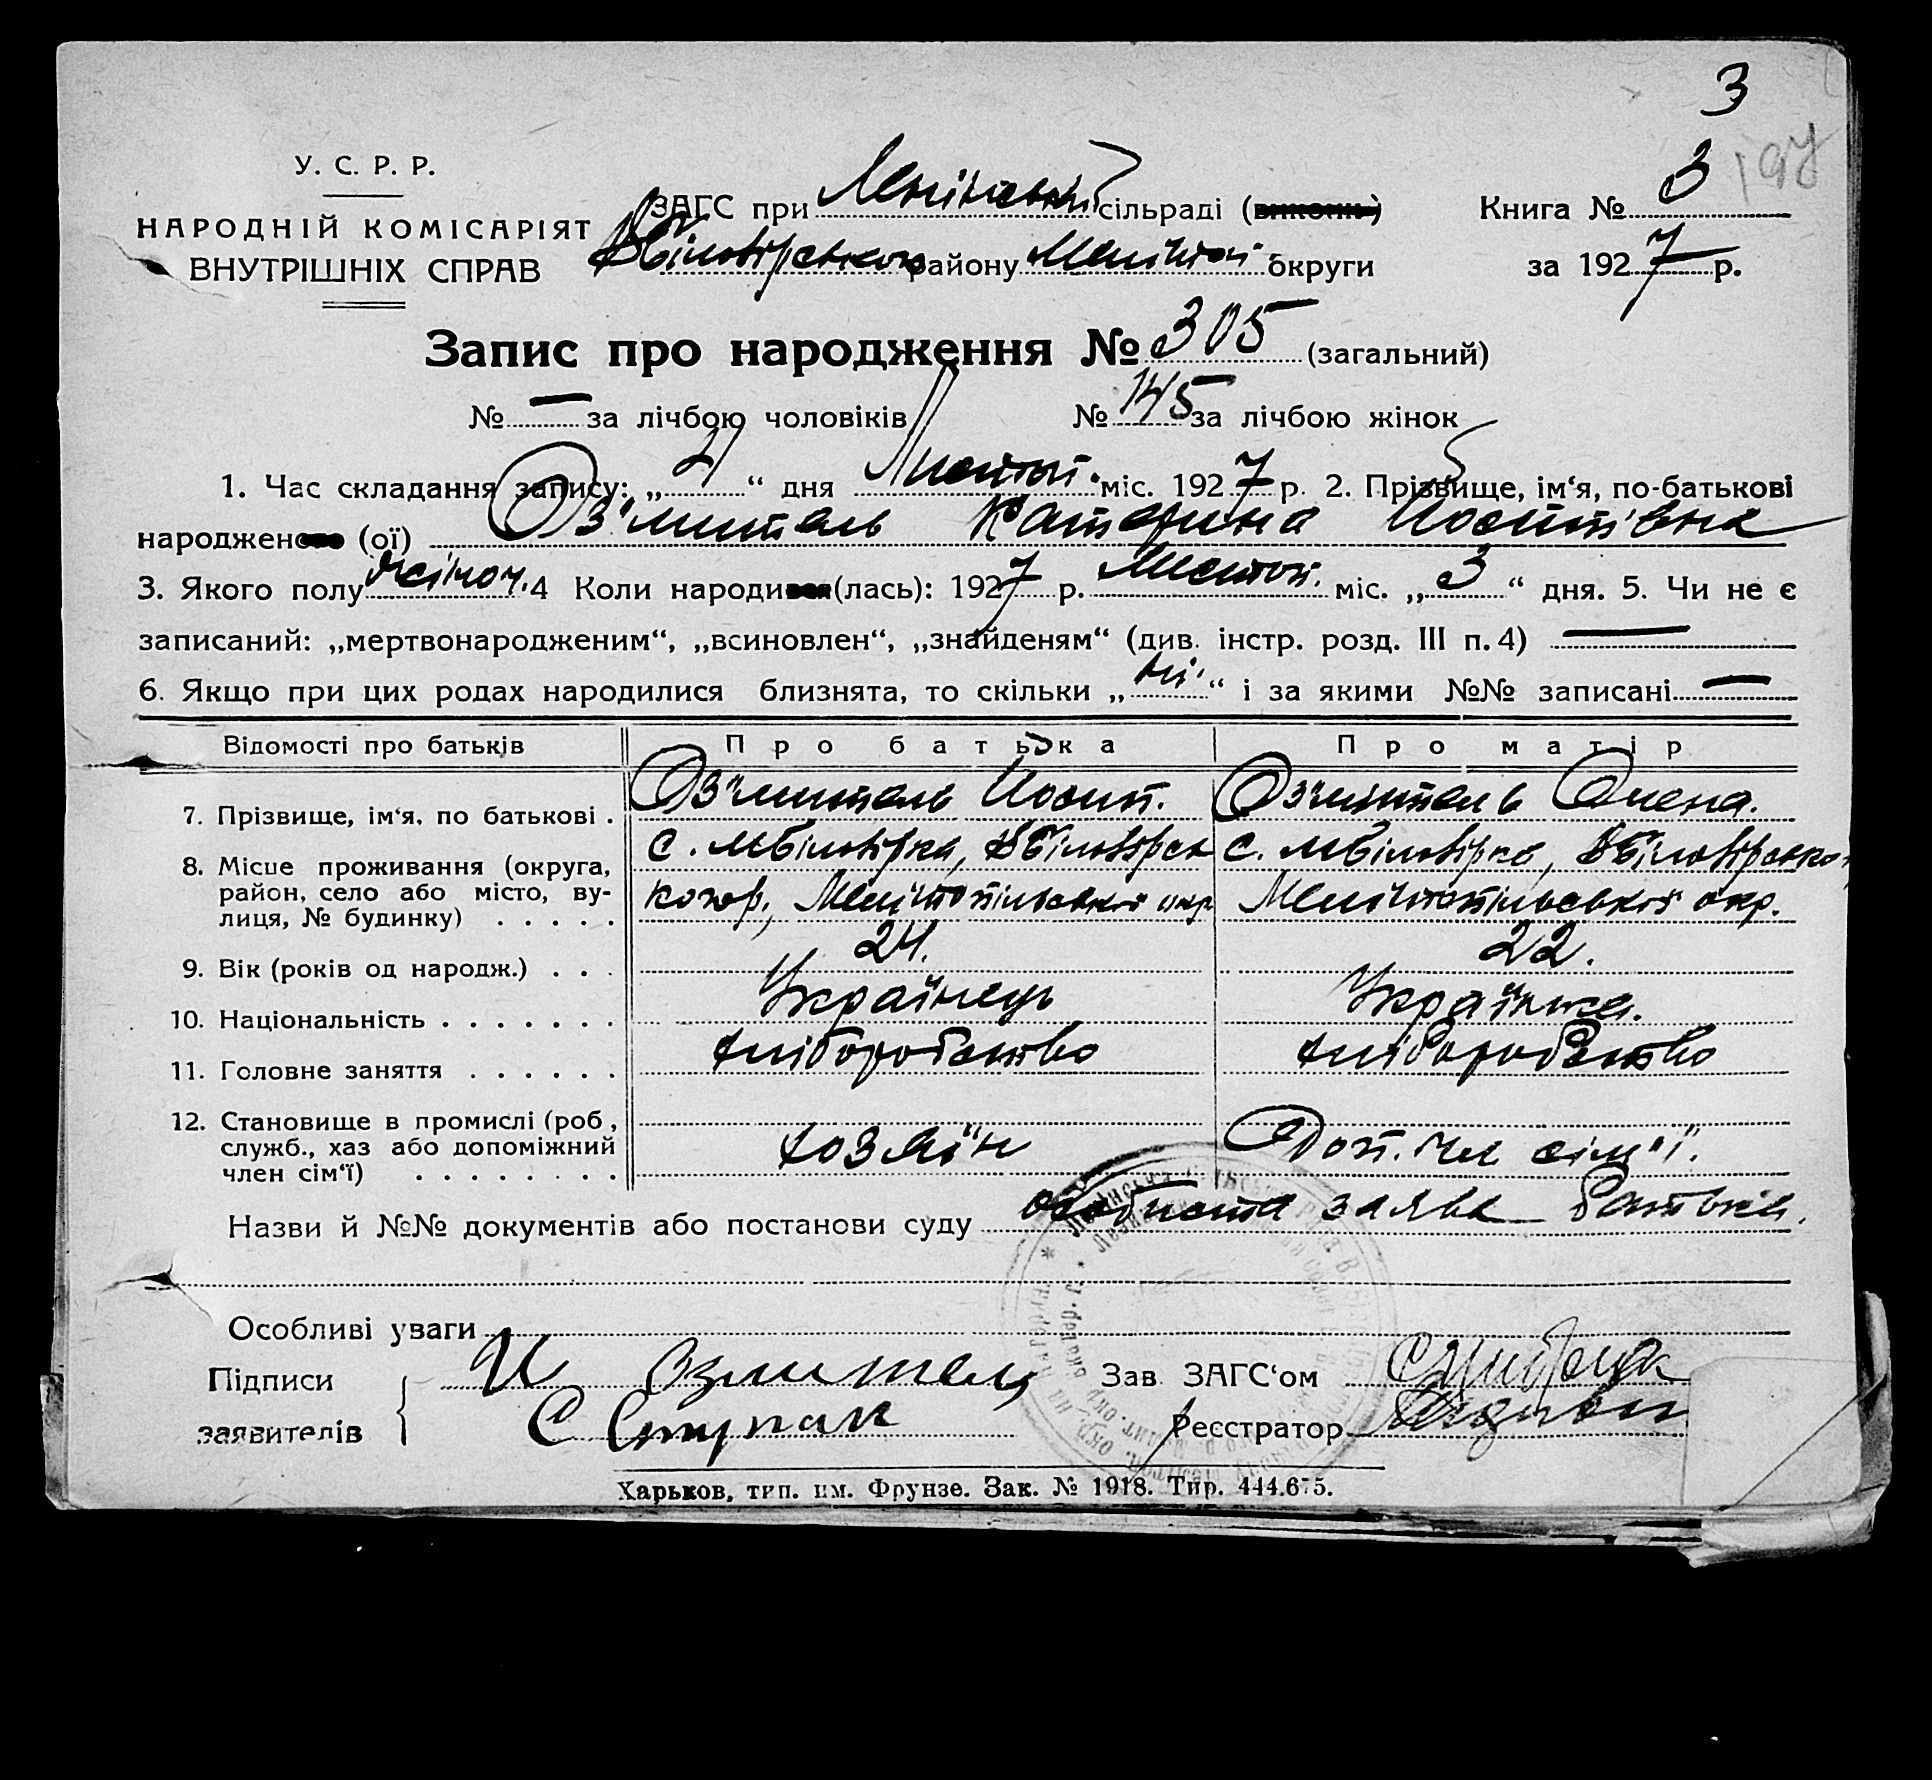 3
197
У. С. Р. Р.
НАРОДНІЙ КОМІСАРІЯТ
ВНУТРІШНІХ СПРАВ
ЗАГС при Ленінській сільраді
району Меліттоп. округи
Книга № 3
за 1927 р.
Запис про народження № 305 (загальний)
№ — за лічбою чоловіків № 145 за лічбою жінок
1. Час складання запису: „ “ дня Листоп. міс. 1927 р. 2. Прізвище, ім‘я, по-батькові
народжен (ої) Вз'митель Катерина Йосипівна
3. Якого полу жіноч. 4 Коли народи (лась): 1927 р. Листоп. міс. „3“ дня. 5. Чи не є
записаний: „мертвонародженим“, „всиновлен“, „знайденям“ (див. інстр. розд. III п. 4) —
6. Якщо при цих родах народилися близнята, то скільки „ні“ і за якими №№ записані —
Відомості про батьків Про батька Про матір
7. Прізвище, ім‘я, по батькові . Вз'митель Йосип. Вз'митель Олена.
8. Місце проживання (округа, район, село або місто, вулиця, № будинку) . . . . .
с. Мбіловірка, с. Мбіловірка,
Мелітопільської окр. Мелітопільської окр.
9. Вік (років од народж.) . . . 24. 22.
10. Національність . . . . . . . Українець Українка.
11. Головне заняття . . . . . . хліборобство хліборобство
12. Становище в промислі (роб, служб., хаз або допоміжний член сім‘ї) . . . . . . . .
хозяїн Доп. чл сім'ї.
Назви й №№ документів або постанови суду особиста заява батька.
Особливі уваги
Підписи заявителів
И Взмитель
С Ступак
Зав ЗАГС‘ом
Реєстратор
Харьков, тип. им. Фрунзе. Зак. № 1918. Тир. 444.675.